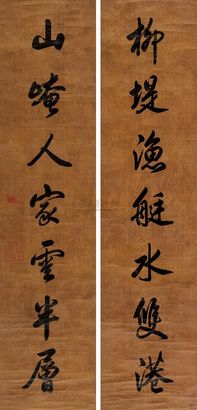 柳堤漁艇水雙港
山崦人家雲半層